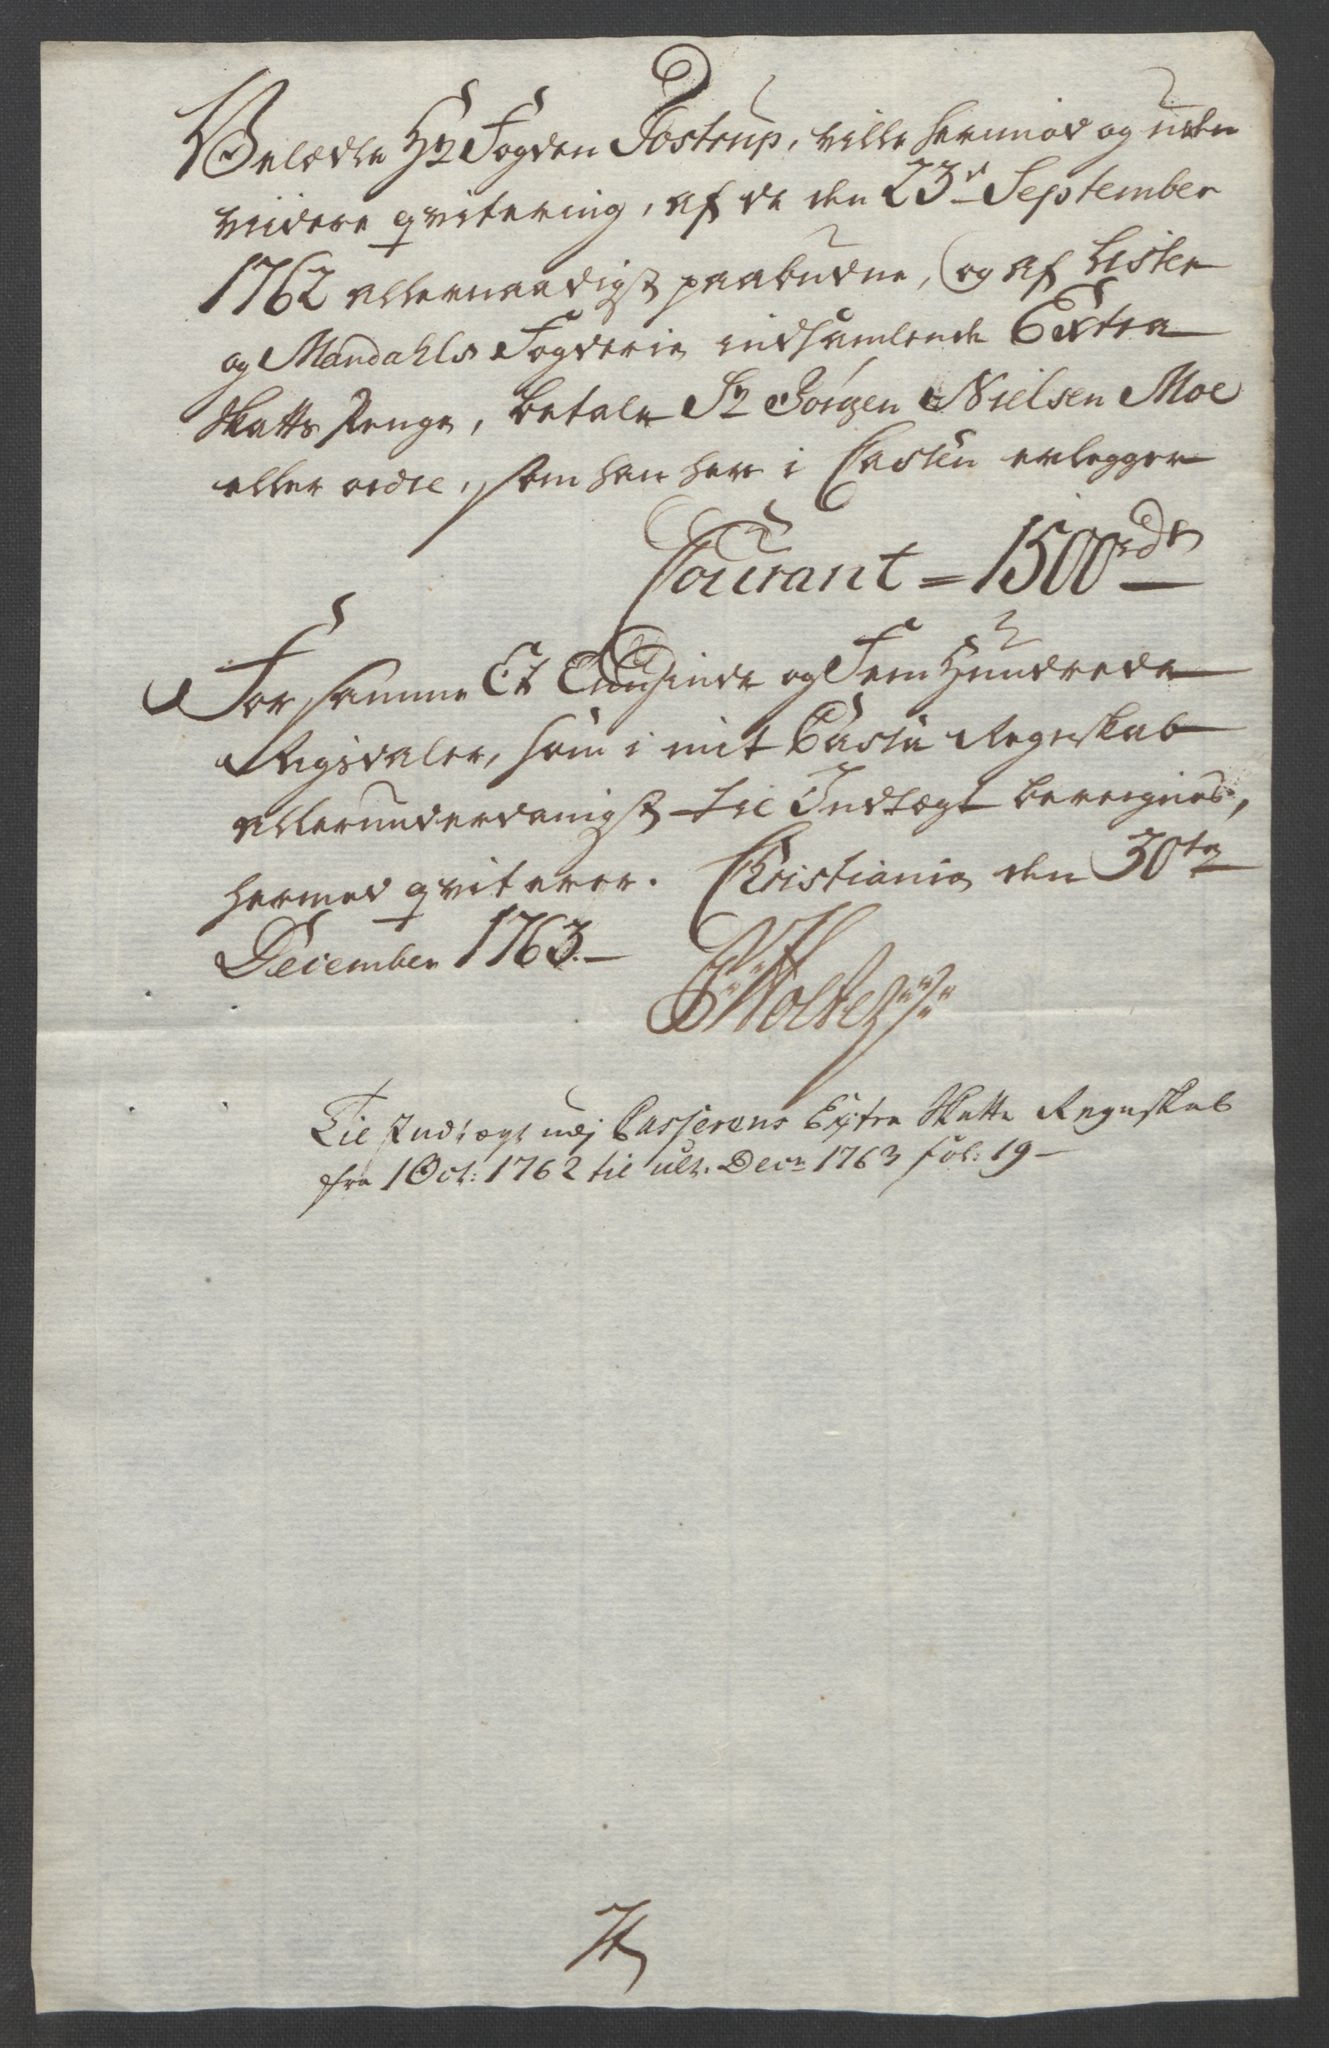 Velædle Hr Fogden Tostrup, ville hermod og uden
viidere qvitering, af de den 23de September
1762 allernaadigst paabudne, og af Lister
og Mandahls Fogderie indsamlende Extra
Skatts Penge, betale Sr Jörgen Nielsen Moe
eller ordre, som han her i Cassen erlegger
Courant = 1500 rdr
For samme Et Tusinde og Fem Hundrede
Rigsdaler, som i mit Cassa Regnskab
allerunderdanigst til Indtægt beregnes,
hermed qviterer. Christiania den 30te
December 1763.
Til Indtægt udj Casserens Extra Skatte Regnskab
fra 1 Oct: 1762 til ult. Decr 1763 fol: 19